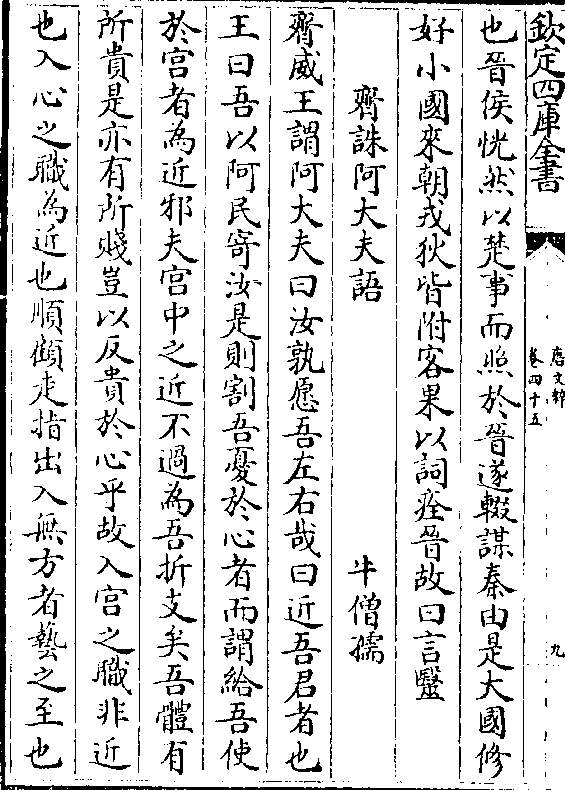 欽定四庫全書
唐文粹
卷四十五
九
也晉侯恍然以楚事而照於晉遂輟謀秦由是大國修
好小國來朝戎狄皆附客果以詞痊晉故曰言毉
齊誅阿大夫語 牛僧孺
齊威王謂阿大夫曰汝孰愿吾左右哉曰近吾君者也
王曰吾以阿民寄汝是則割吾憂於心者而謂給吾使
於宫者為近邪夫宫中之近不過為吾折支矣吾體有
所貴是亦有所賤豈以反貴於心乎故入宫之職非近
也入心之職為近也順顧走指出入無方者藝之至也